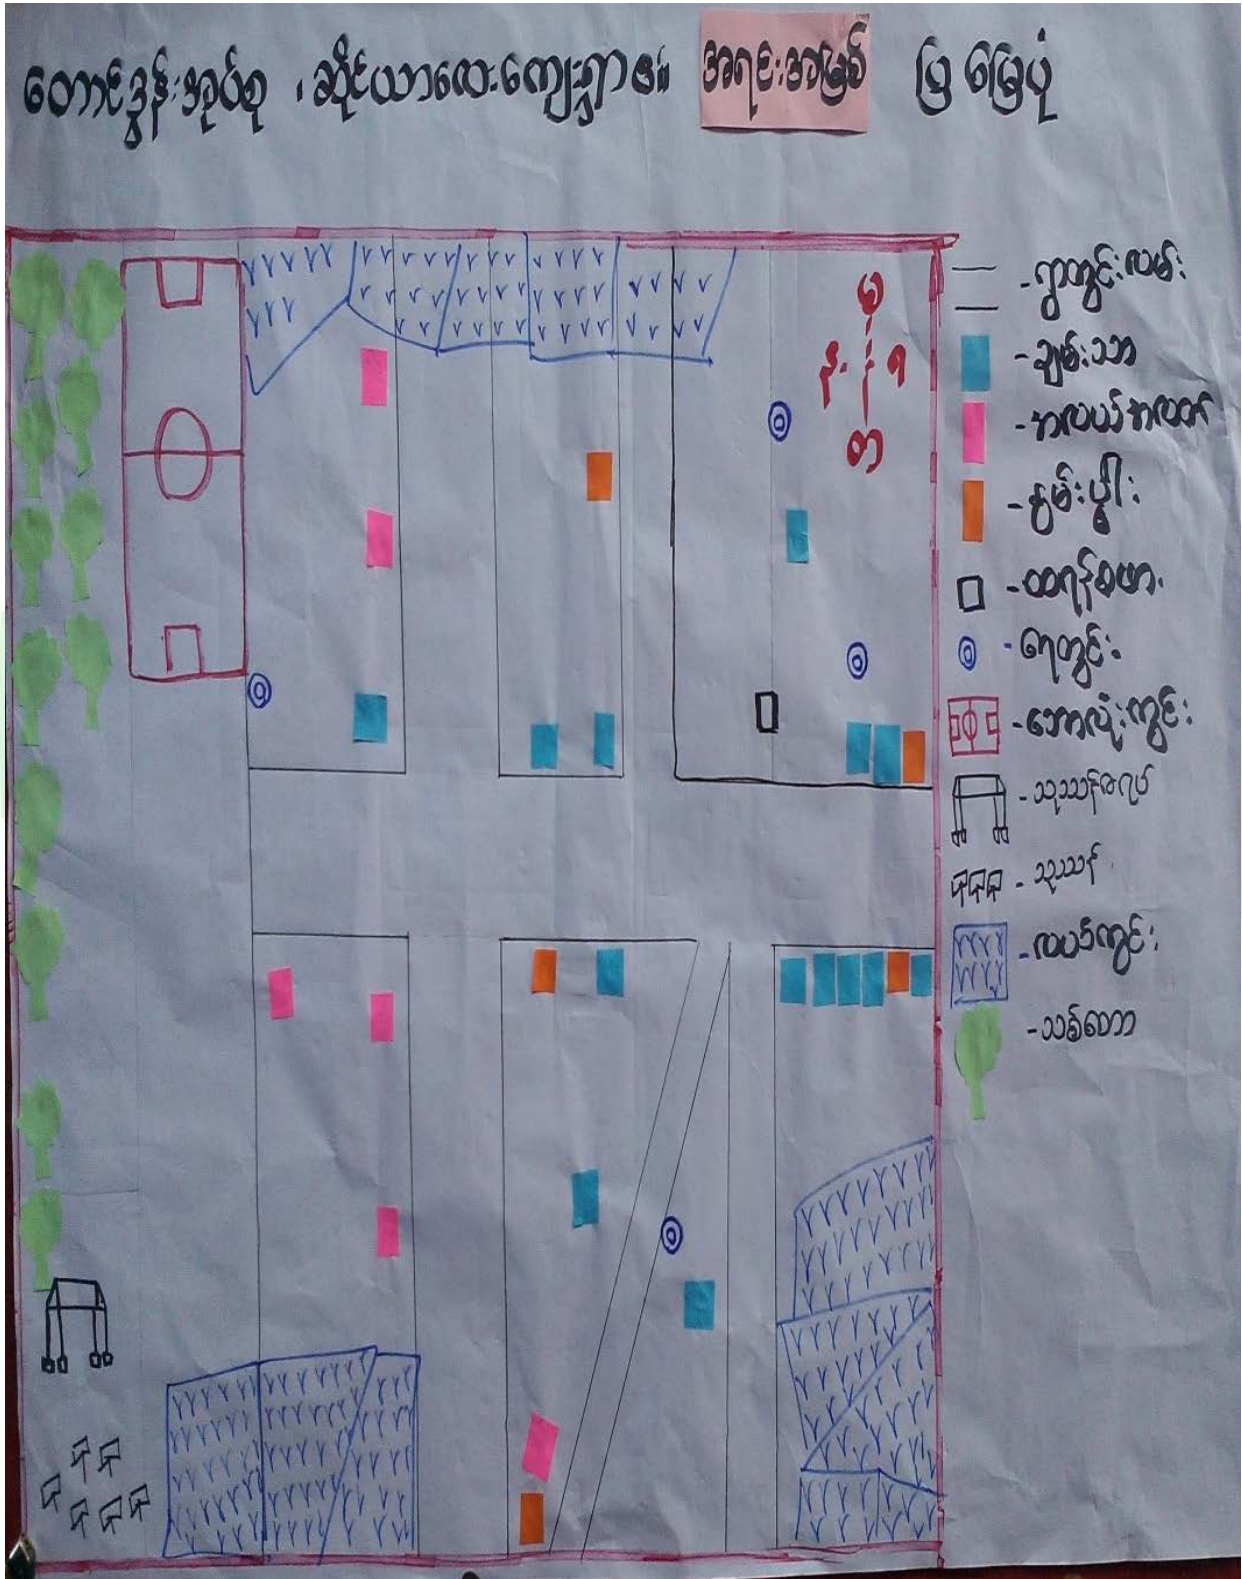 တောင်ဒွန်းအုပ်စု ၊ ဆိုင်ယာလေးကျေးရွာ၏ အရင်းအမြစ် ပြ မြေပုံ
- ရွာတွင်းလမ်း
- ချမ်းသာ
- အလယ်အလတ်
- နွမ်းပါး
- ထရန်စဖာ
- ရေတွင်း
- ဘောလုံးကွင်း
- သုသာန်ဇရပ်
- သုသာန်
- လယ်ကွင်း
- သစ်တော
မ
န တ
တ